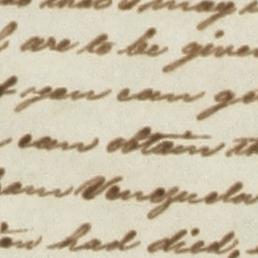 that I may
are to be given
you can
can obtain
Venezuela
had died,